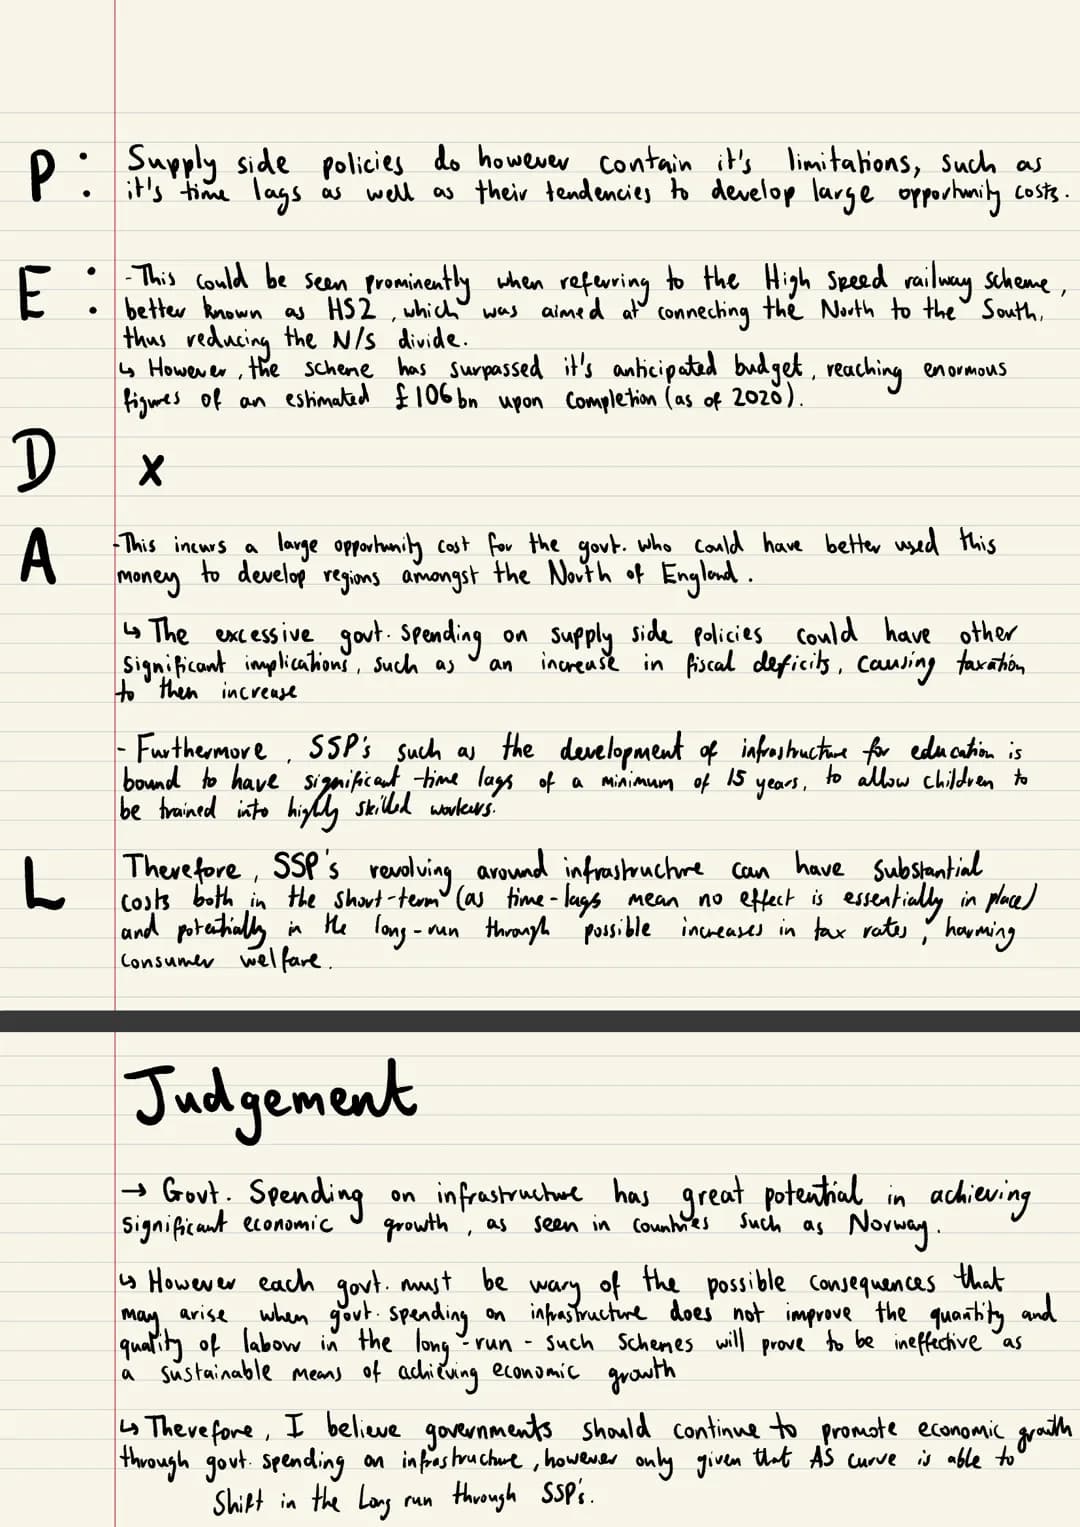 P: Supply side policies do however contain it's limitations, such as
it's time lags as well as their tendencies to develop large opportunity costs.
E: - This could be seen prominently when referring to the High Speed railway scheme,
better known as HS2, which was aimed at connecting the North to the South,
thus reducing the N/S divide.
↳ However, the scheme has surpassed it's anticipated budget, reaching enormous
figures of an estimated £106bn upon completion (as of 2020).
D x
A - This incurs a large opportunity cost for the govt. who could have better used this
money to develop regions amongst the North of England.
↳ The excessive govt. spending on supply side policies could have other
significant implications, such as an increase in fiscal deficits, causing taxation
to then increase
- Furthermore, SSP's such as the development of infrastructure for education is
bound to have significant time lags of a minimum of 15 years, to allow children to
be trained into highly skilled workers.
L Therefore, SSP's revolving around infrastructure can have substantial
costs both in the short-term (as time-lags mean no effect is essentially in place)
and potentially in the long-run through possible increases in tax rates, harming
consumer welfare.
Judgement
→ Govt. Spending on infrastructure has great potential in achieving
significant economic growth, as seen in countries such as Norway.
↳ However each govt. must be wary of the possible consequences that
may arise when govt. spending on infrastructure does not improve the quantity and
quality of labour in the long-run - such schemes will prove to be ineffective as
a sustainable means of achieving economic growth
↳ Therefore, I believe governments should continue to promote economic growth
through govt. spending on infrastructure, however only given that AS curve is able to
Shift in the Long run through SSP's.